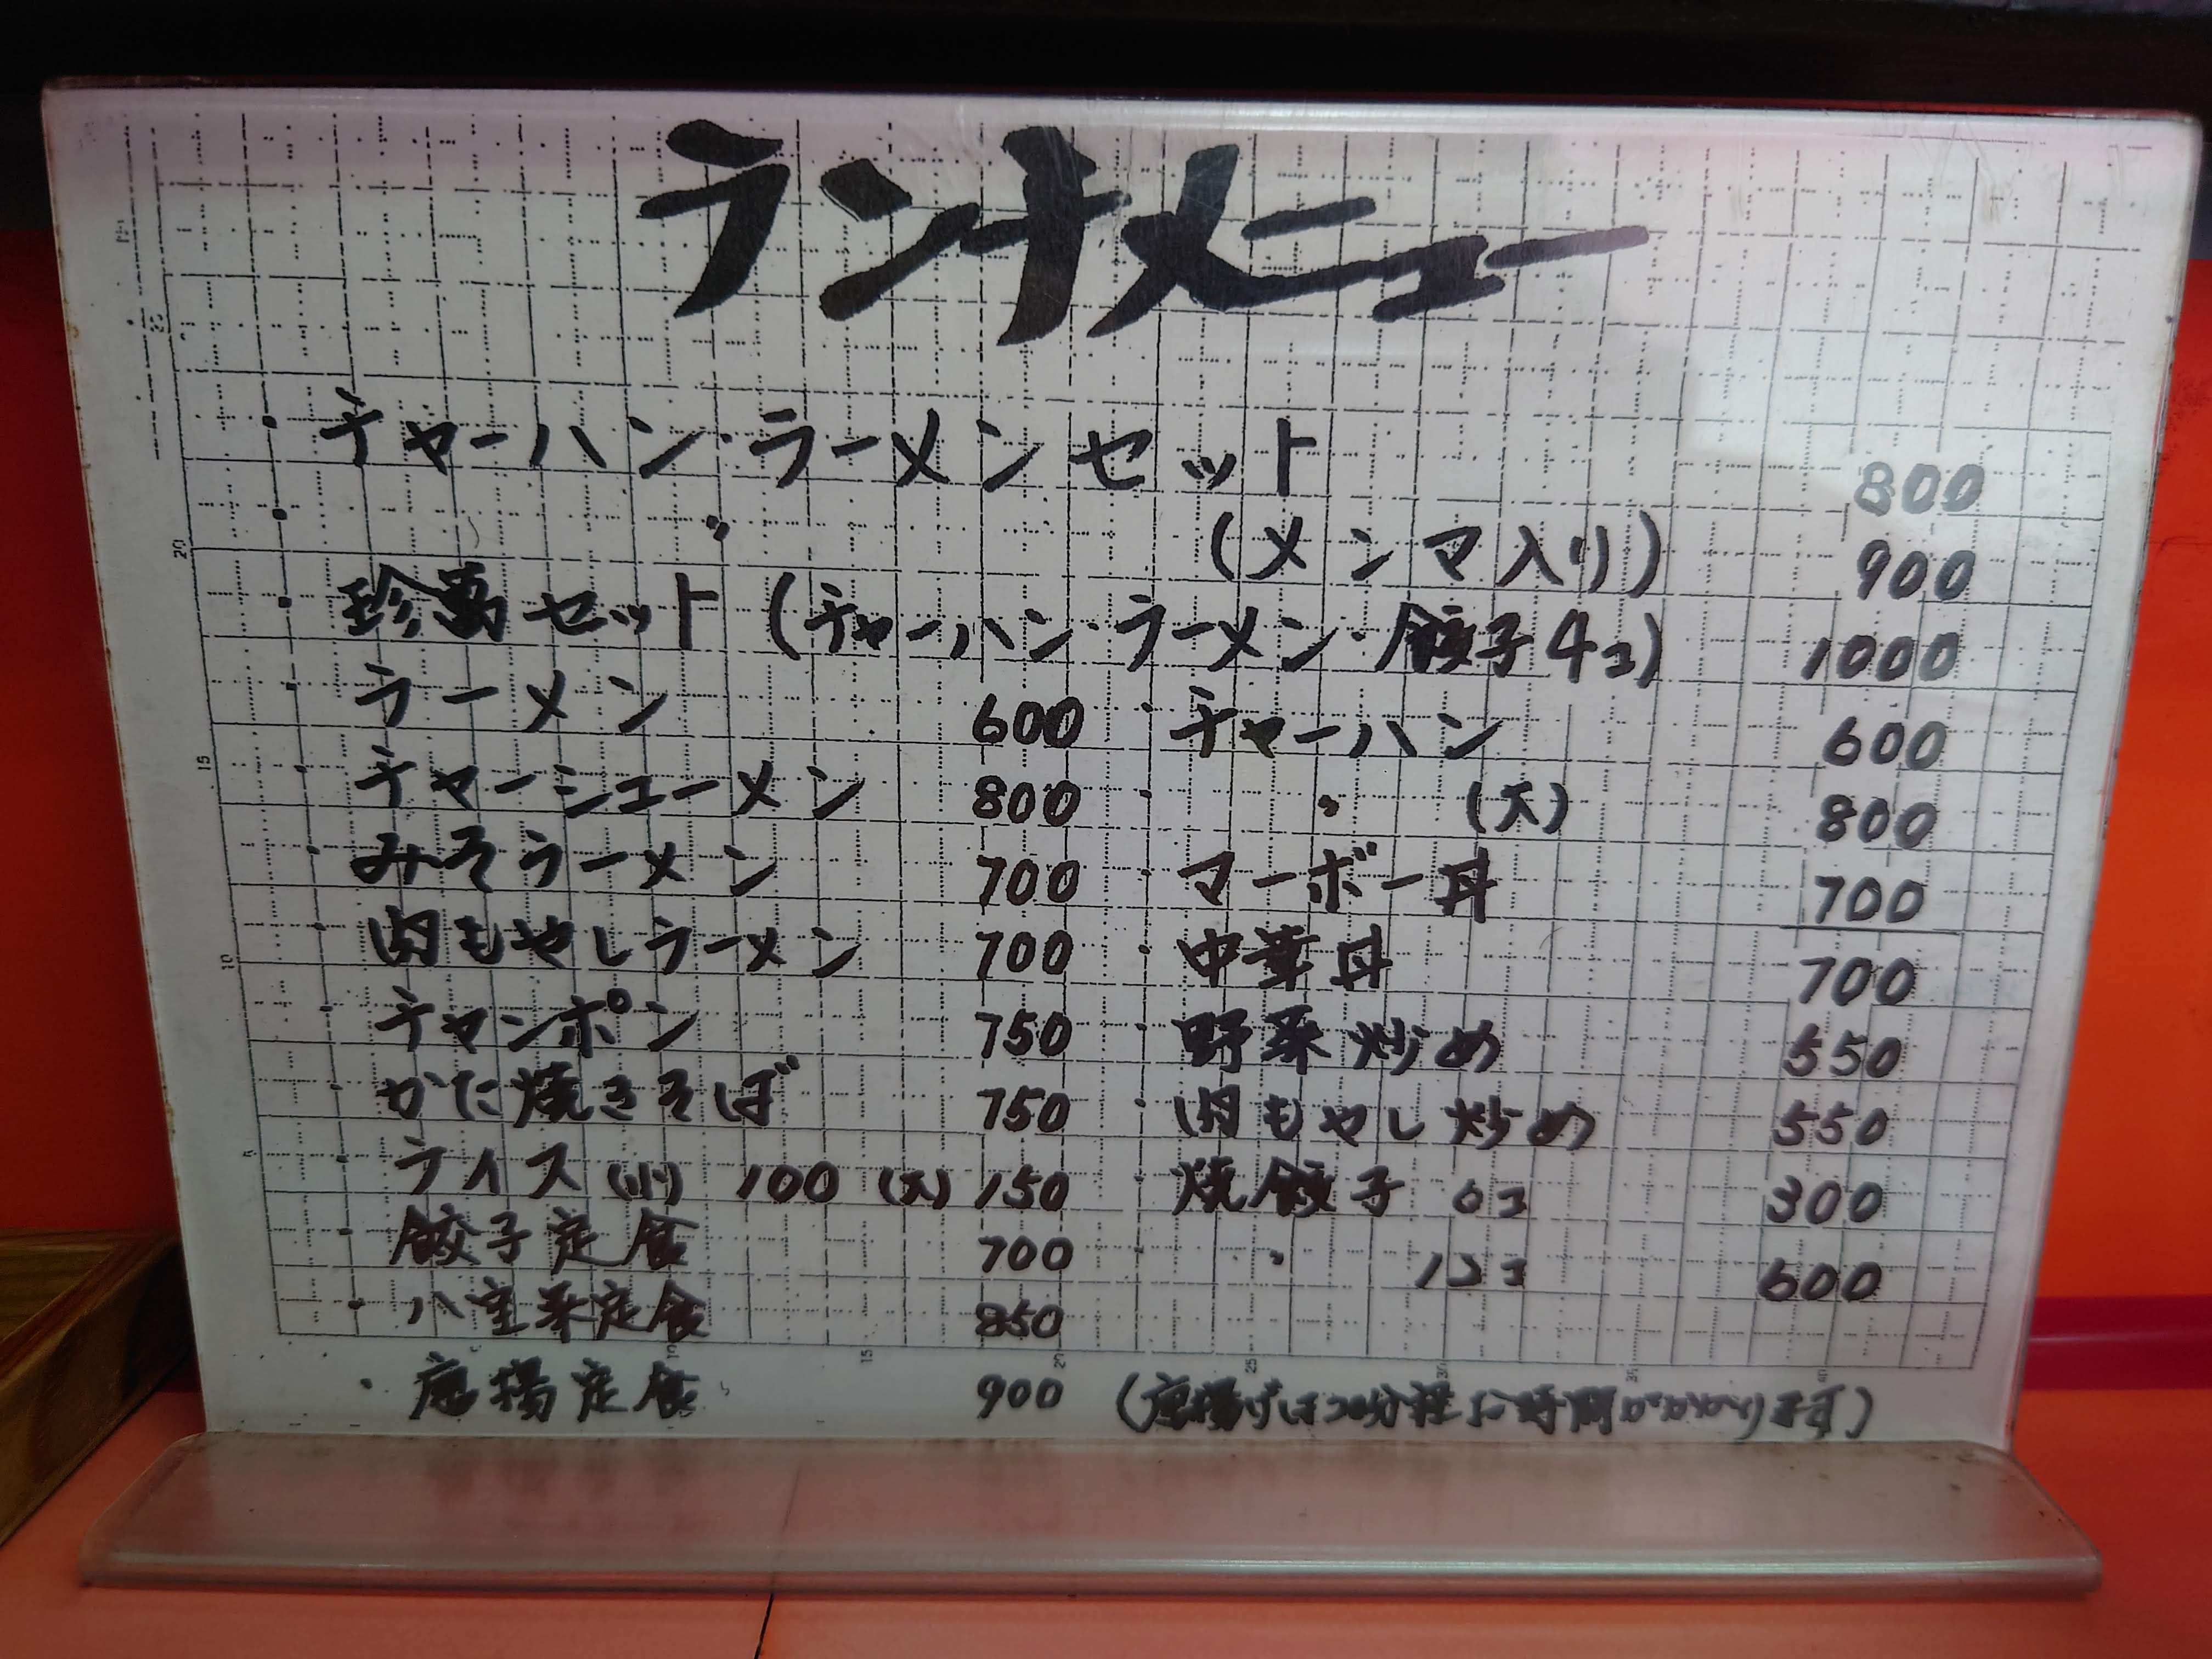 ランチメニュー
・チャーハン・ラーメンセット 800
・〃 (メンマ入り) 900
・珍萬セット (チャーハン・ラーメン・餃子4コ) 1000
・ラーメン 600
・チャーシューメン 800
・みそラーメン 700
・肉もやしラーメン 700
・チャンポン 750
・かた焼きそば 750
・ライス (小) 100 (大) 150
・餃子定食 700
・八宝菜定食 850
・唐揚定食 900 (唐揚げは20分程お時間がかかります)
・チャーハン 600
・〃 (大) 800
・マーボー丼 700
・中華丼 700
・野菜炒め 550
・肉もやし炒め 550
・焼餃子 6コ 300
・〃 12コ 600
20
15
10
5
10
15
20
25
30
35
40